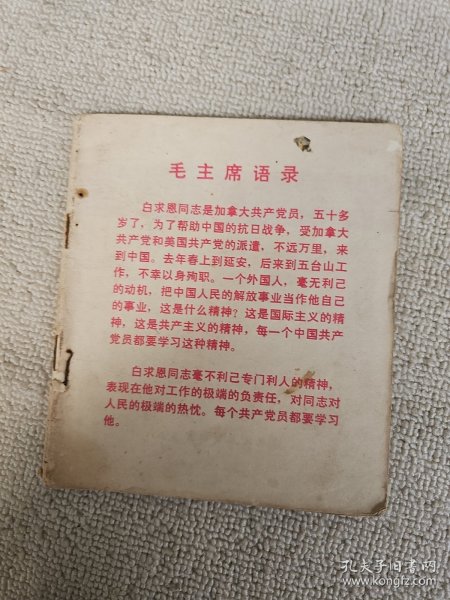 毛主席语录
白求恩同志是加拿大共产党员，五十多
岁了，为了帮助中国的抗日战争，受加拿大
共产党和美国共产党的派遣，不远万里，来
到中国。去年春上到延安，后来到五台山工
作，不幸以身殉职。一个外国人，毫无利己
的动机，把中国人民的解放事业当作他自己
的事业，这是什么精神？这是国际主义的精
神，这是共产主义的精神，每一个中国共产
党员都要学习这种精神。
白求恩同志毫不利己专门利人的精神，
表现在他对工作的极端的负责任，对同志对
人民的极端的热忱。每个共产党员都要学习
他。
孔夫子旧书网
www.kongfz.com